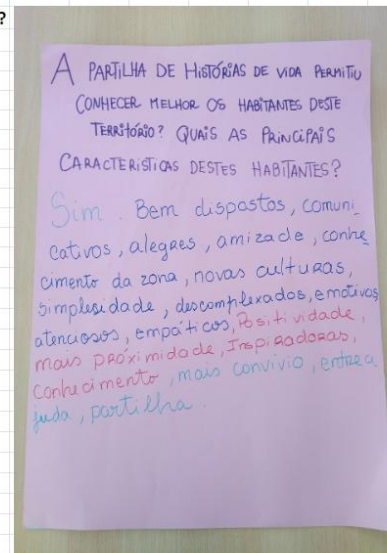 ?
A PARTILHA DE HISTÓRIAS DE VIDA PERMITIU
CONHECER MELHOR OS HABITANTES DESTE
TERRITÓRIO? QUAIS AS PRINCIPAIS
CARACTERISTICAS DESTES HABITANTES?
Sim. Bem dispostos, comuni_
cativos, alegres, amizade, conhe
cimento da zona, novas culturas,
simplesidade, descomplexados, emotivos
atenciosos, empáticos, Positividade,
mais próximidade, Inspiradoras,
conhecimento, mais convivio, entrea
juda, partilha.